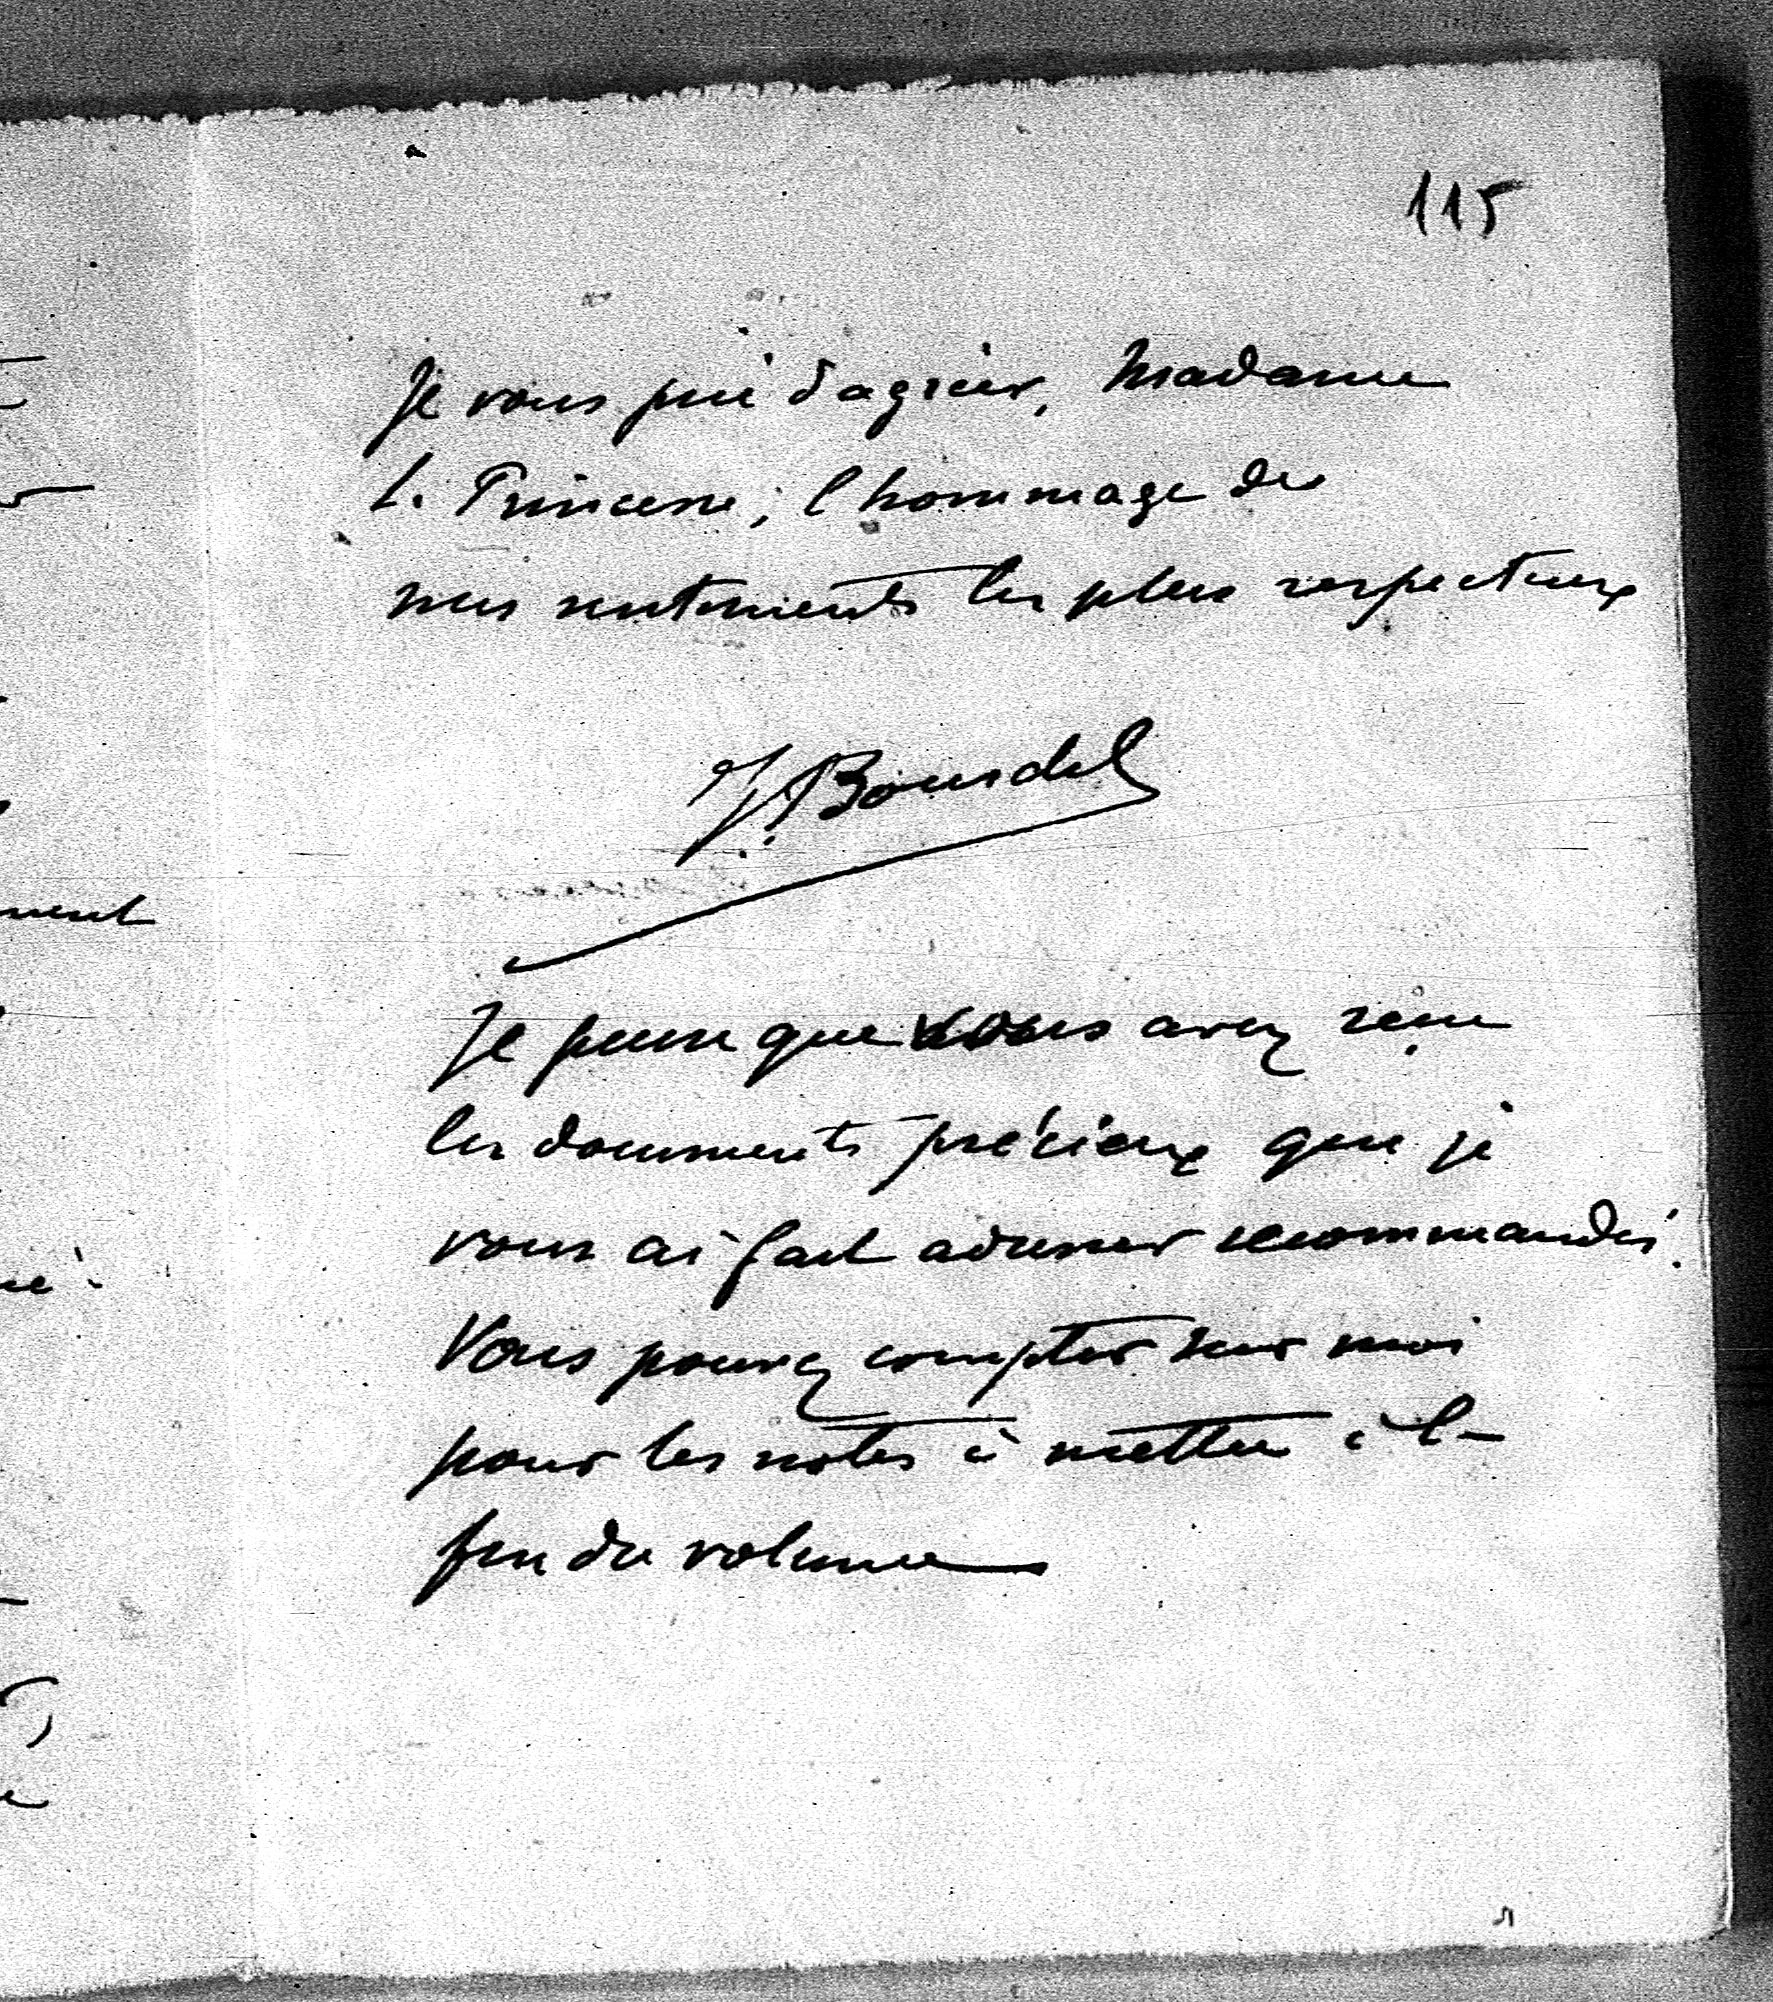 115
Je vous prie d'agréer, Madame
la Princesse, l'hommage de
mes sentiments les plus respectueux
J. Bourdel
Je pense que vous avez reçu
les documents précieux que je
vous ai fait adresser recommandés.
Vous pouvez compter sur moi
pour les notes à mettre à la
fin du volume
ment